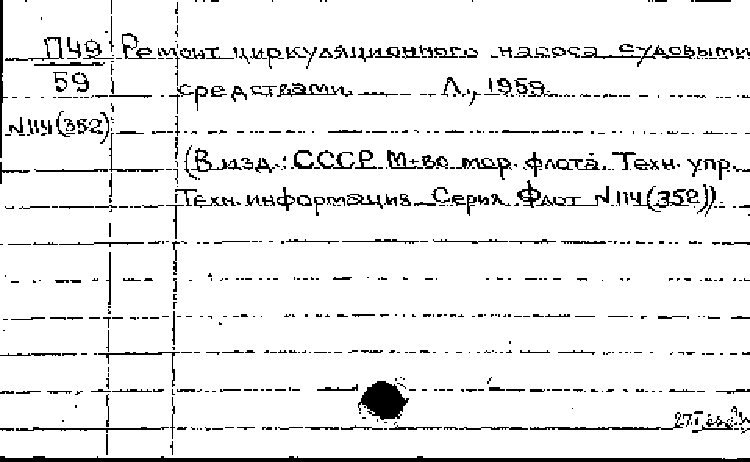 П49 Ремонт циркуляционного насоса судовыми
59 средствами. ... Л., 1959
N114(352)
(В изд.: СССР М-во мор. флота. Техн. упр.
Техн. информация. Серия Флот N114(352)).